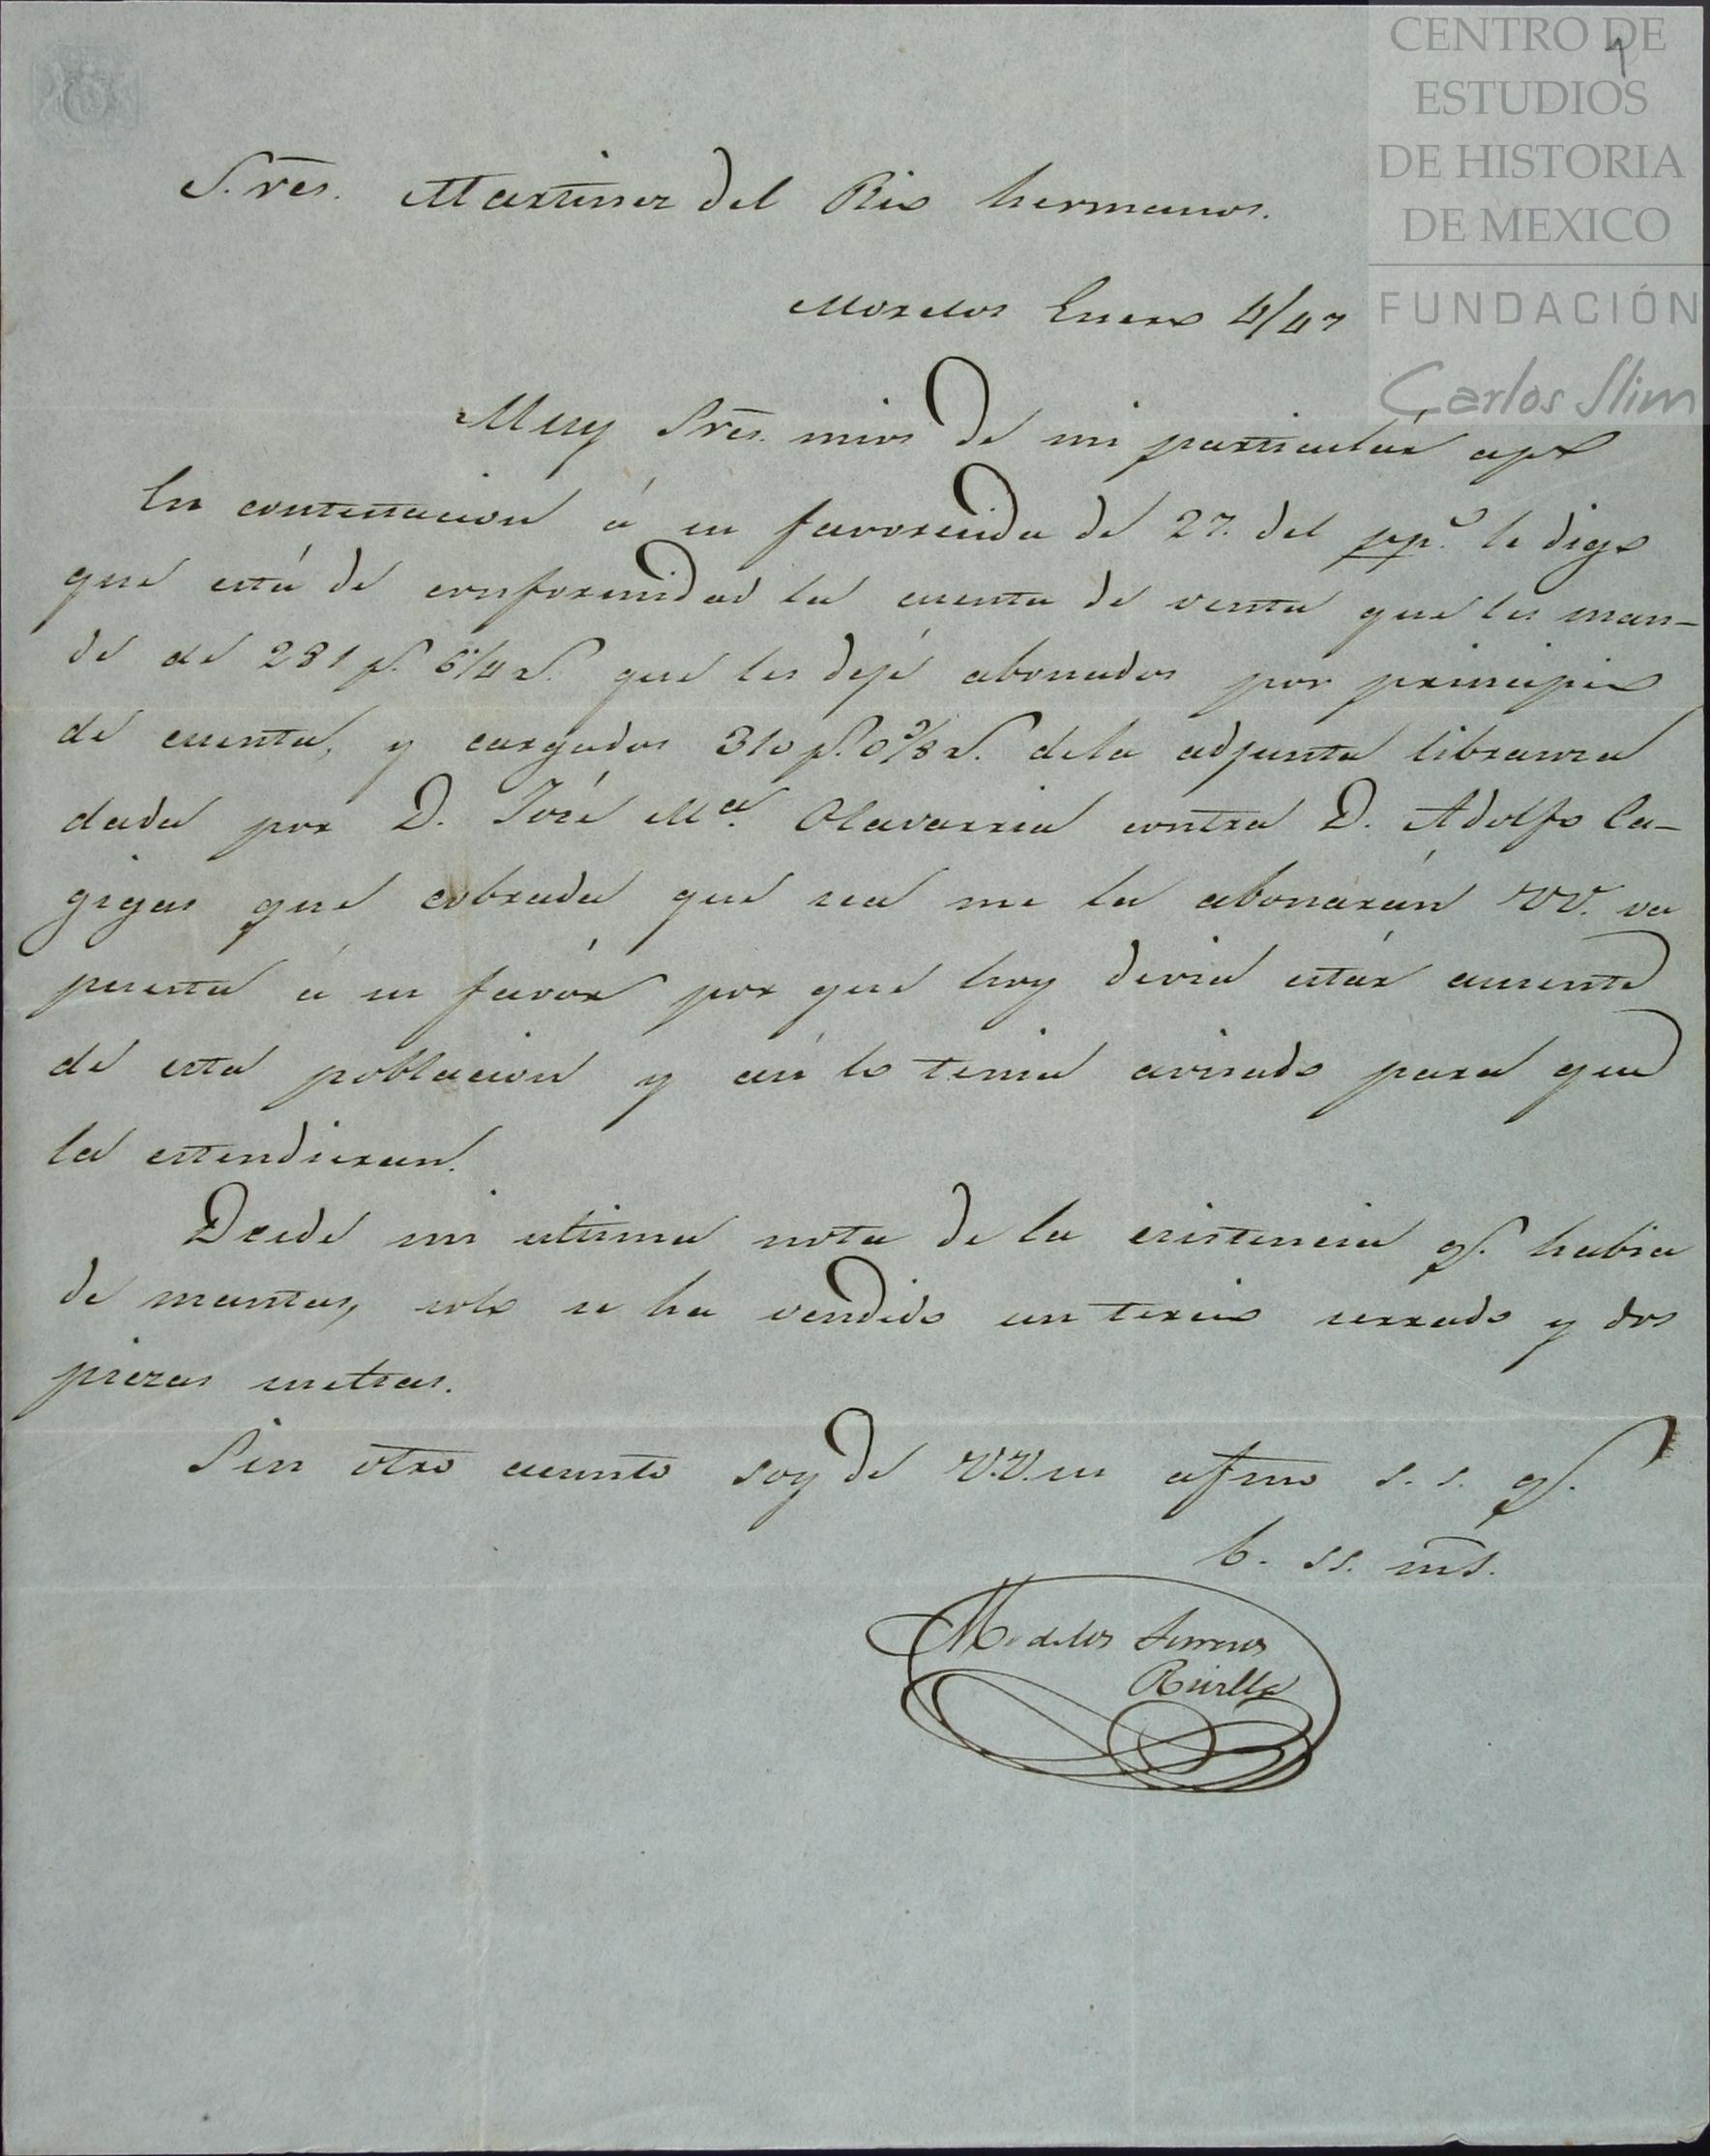 CENTRO DE
ESTUDIOS
DE HISTORIA
DE MEXICO
FUNDACIÓN
Carlos Slim
S.res. Martinez del Rio hermanos.
Morelos Enero 4/47
Muy Sres. mios de mi particulár apo
En contestacion á su favorecida de 27. del pp.o le digo
que está de conformidad la cuenta de venta que les man-
dé de 281 p.s 6 1/4 r.s que les dejé abonados por principio
de cuenta, y cargados 310 p.s 0 3/8 r.s dela adjunta libranza
dada por D. José Ma. Olavarria contra D. Adolfo Ca-
gigas que cobrada que sea me la abonarán VV. va
puesta á su favór por que hoy devia estár ausente
de esta poblacion y asi lo tenia avisado para que
la estendieran.
Desde mi ultima nota de la existencia q.e habia
de mantas, solo se ha vendido un tercio serrado y dos
piezas sueltas.
Sin otro asunto soy de V.V. su afmo s. s. q.
b. ss. ms.
M. delos